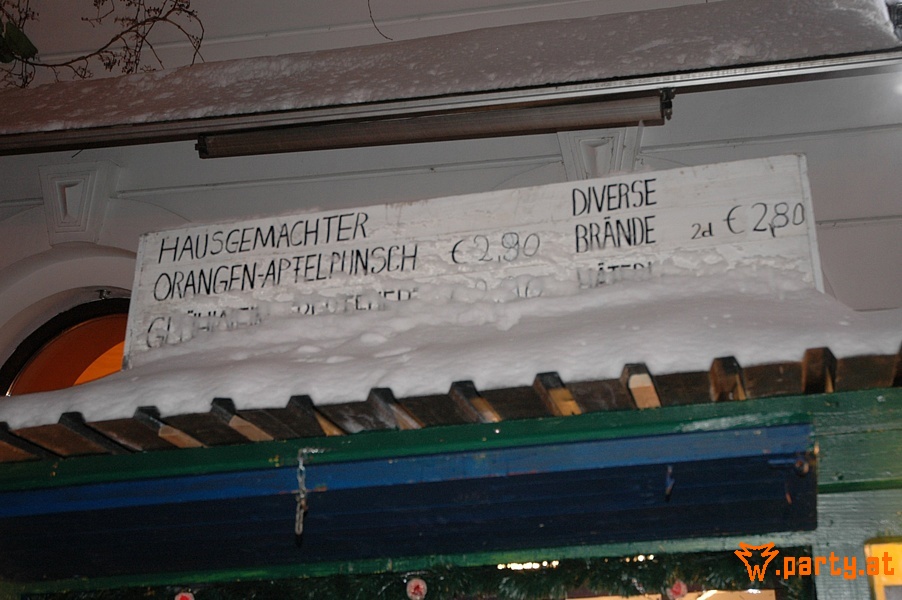 HAUSGEMACHTER
ORANGEN-APFELPUNSCH € 2,90
DIVERSE
BRÄNDE 2cl € 2,80
w.party.at